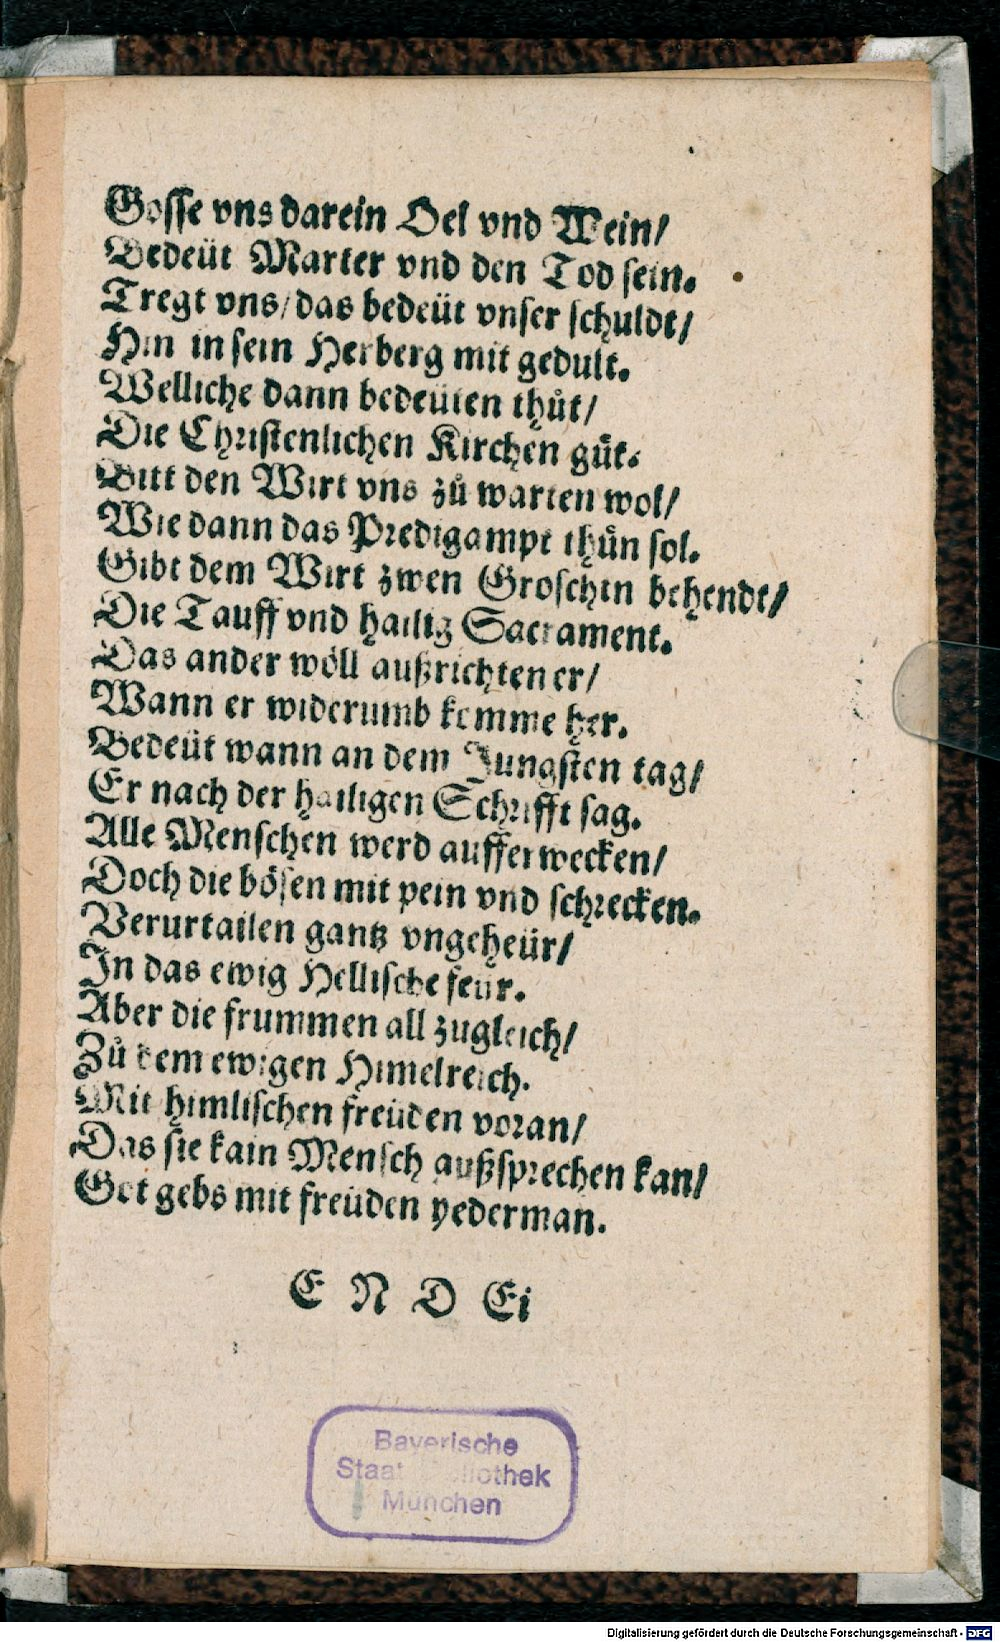 Gosse vns darein Oel vnd Wein/
Bedeüt Marter vnd den Tod sein.
Tregt vns/das bedeüt vnser schuldt/
Hin in sein Herberg mit gedult.
Welliche dann bedeüten thůt/
Die Christenlichen Kirchen gůt.
Bitt den Wirt vns zů warten wol/
Wie dann das Predigampt thůn sol.
Gibt dem Wirt zwen Groschen behendt/
Die Tauff vnd hailig Sacrament.
Das ander wöll außrichten er/
Wann er widerumb komme her.
Bedeüt wann an dem Jungsten tag/
Er nach der hailigen Schrifft sag.
Alle Menschen werd aufferwecken/
Doch die bösen mit pein vnd schrecken.
Verurtailen gantz vngeheür/
In das ewig Hellische feür.
Aber die frummen all zugleich/
Zů dem ewigen Himelreich.
Mit himlischen freüden voran/
Das sie kain Mensch außsprechen kan/
Got gebs mit freüden yederman.
E N D E
Bayerische
Staatsbibliothek
München
Digitalisierung gefördert durch die Deutsche Forschungsgemeinschaft - DFG